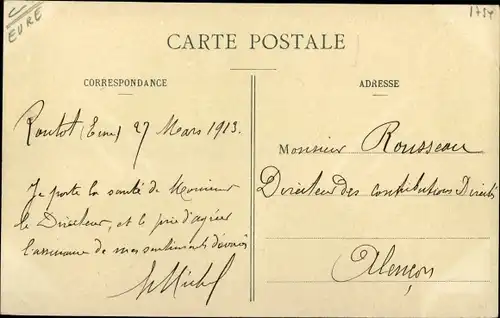 EURE
CARTE POSTALE
CORRESPONDANCE
Routot (Eure) 27 Mars 1913.
Je porte la santé de Monsieur
le Directeur, et le prie d'agréer
l'assurance de mes sentiments dévoués
Michel
ADRESSE
Monsieur Rousseau
Directeur des contributions Directes
Alençon